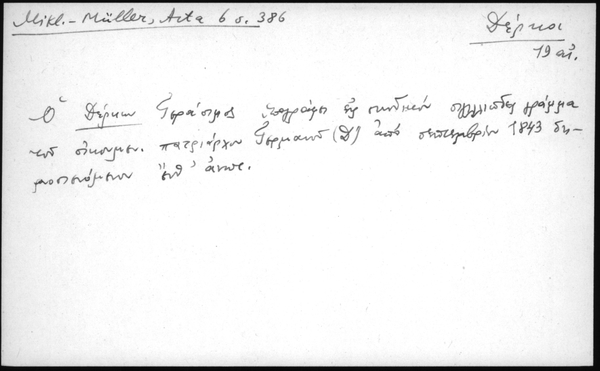 Mikl.-Müller, Acta 6 σ. 386
Δέρκοι
19 αἰ.
Ὁ Δέρκων Γεράσιμος ὑπογράφει εἰς συνοδικόν σιγιλλιῶδες γράμμα
τοῦ οἰκουμεν. πατριάρχου Γερμανοῦ (Δ) ἀπό σεπτεμβρίου 1843 δη-
μοσιευόμενον ἔνθ' ἀνωτ.